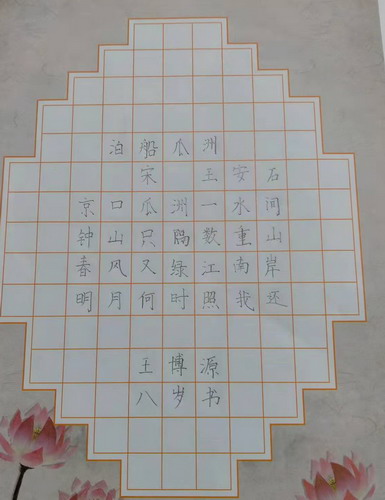 泊船瓜洲
宋 王安石
京口瓜洲一水间
钟山只隔数重山
春风又绿江南岸
明月何时照我还
王博源
八岁书